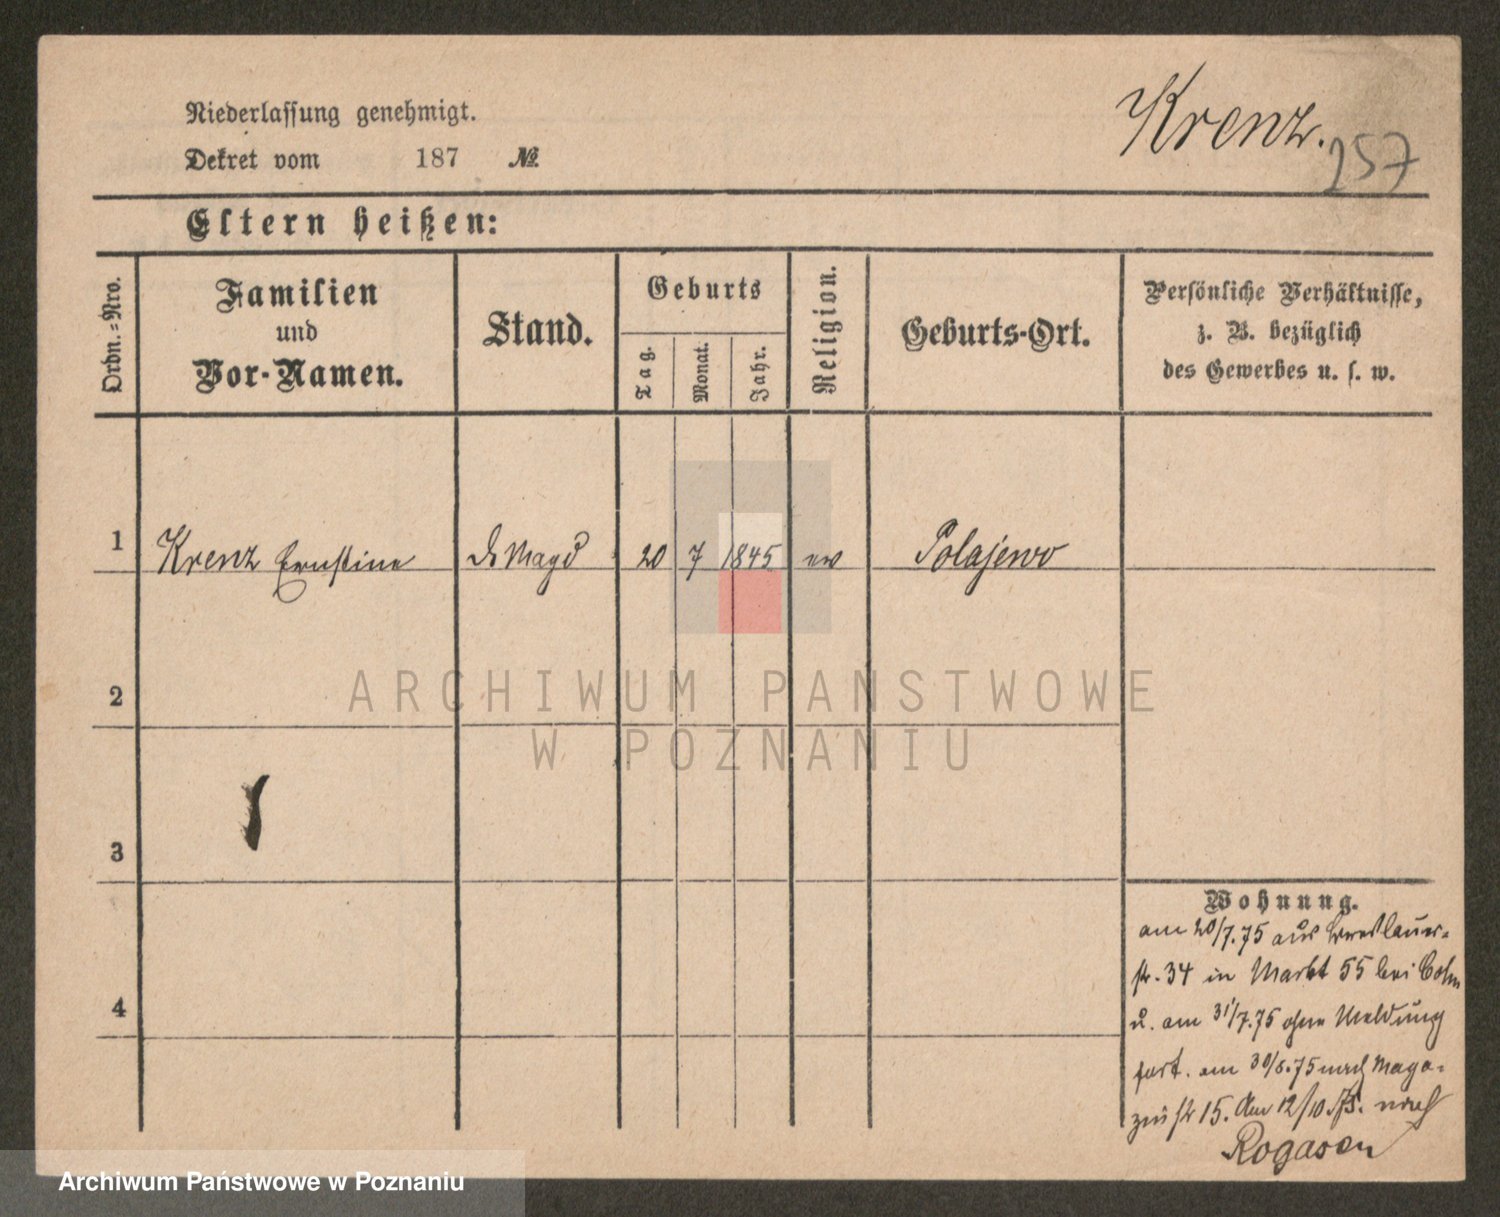 Niederlassung genehmigt.
Krenz.
Dekret vom 187 №
257
Eltern heißen:
Ordn.=Nro.
Familien
und
Vor-Namen.
Stand.
Geburts
Tag.
Monat.
Jahr.
Religion.
Geburts-Ort.
Persönliche Verhältnisse,
z. B. bezüglich
des Gewerbes u. s. w.
1 Krenz Ernstine Magd 20 7 1845 ev Polajewo
2
3
4
Wohnung.
am 20/7.75 aus Breslauer-
str. 34 in Markt 55 bei Cohn
u. am 31/7.75 ohne Meldung
fort. am 30/8.75 nach Maga-
zin str 15. Am 12/10.75. nach
Rogasen
ARCHIWUM PAŃSTWOWE
W POZNANIU
Archiwum Państwowe w Poznaniu